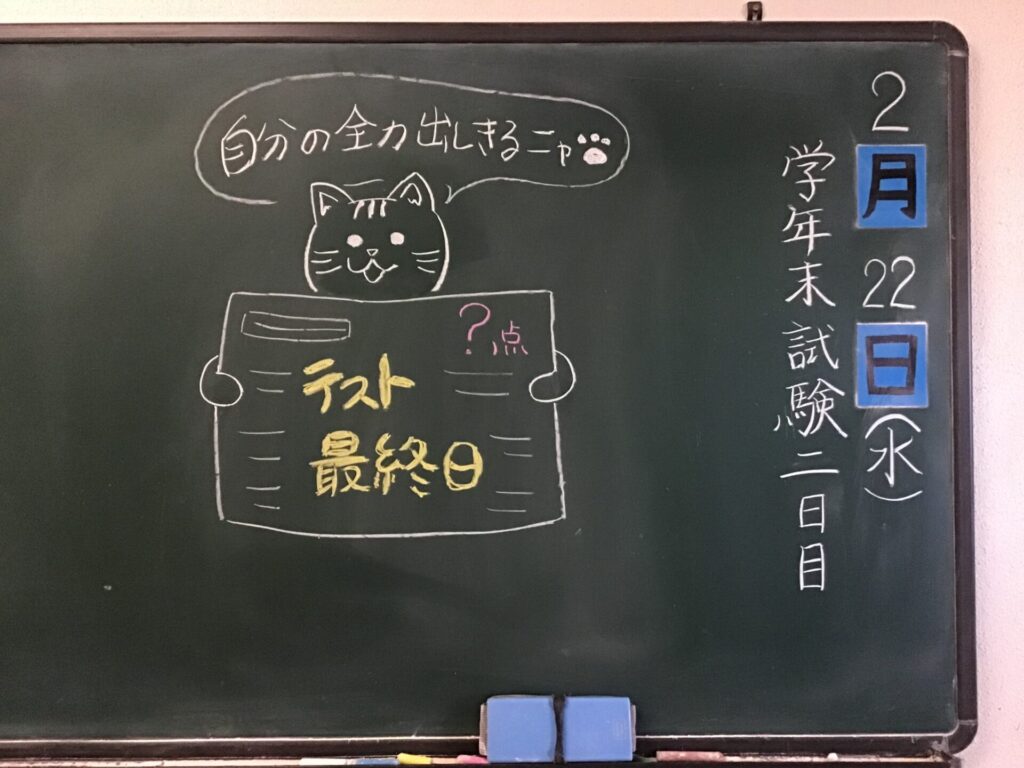 2月22日(水)
学年末試験二日目
自分の全力出しきるニャ
?点
テスト
最終日